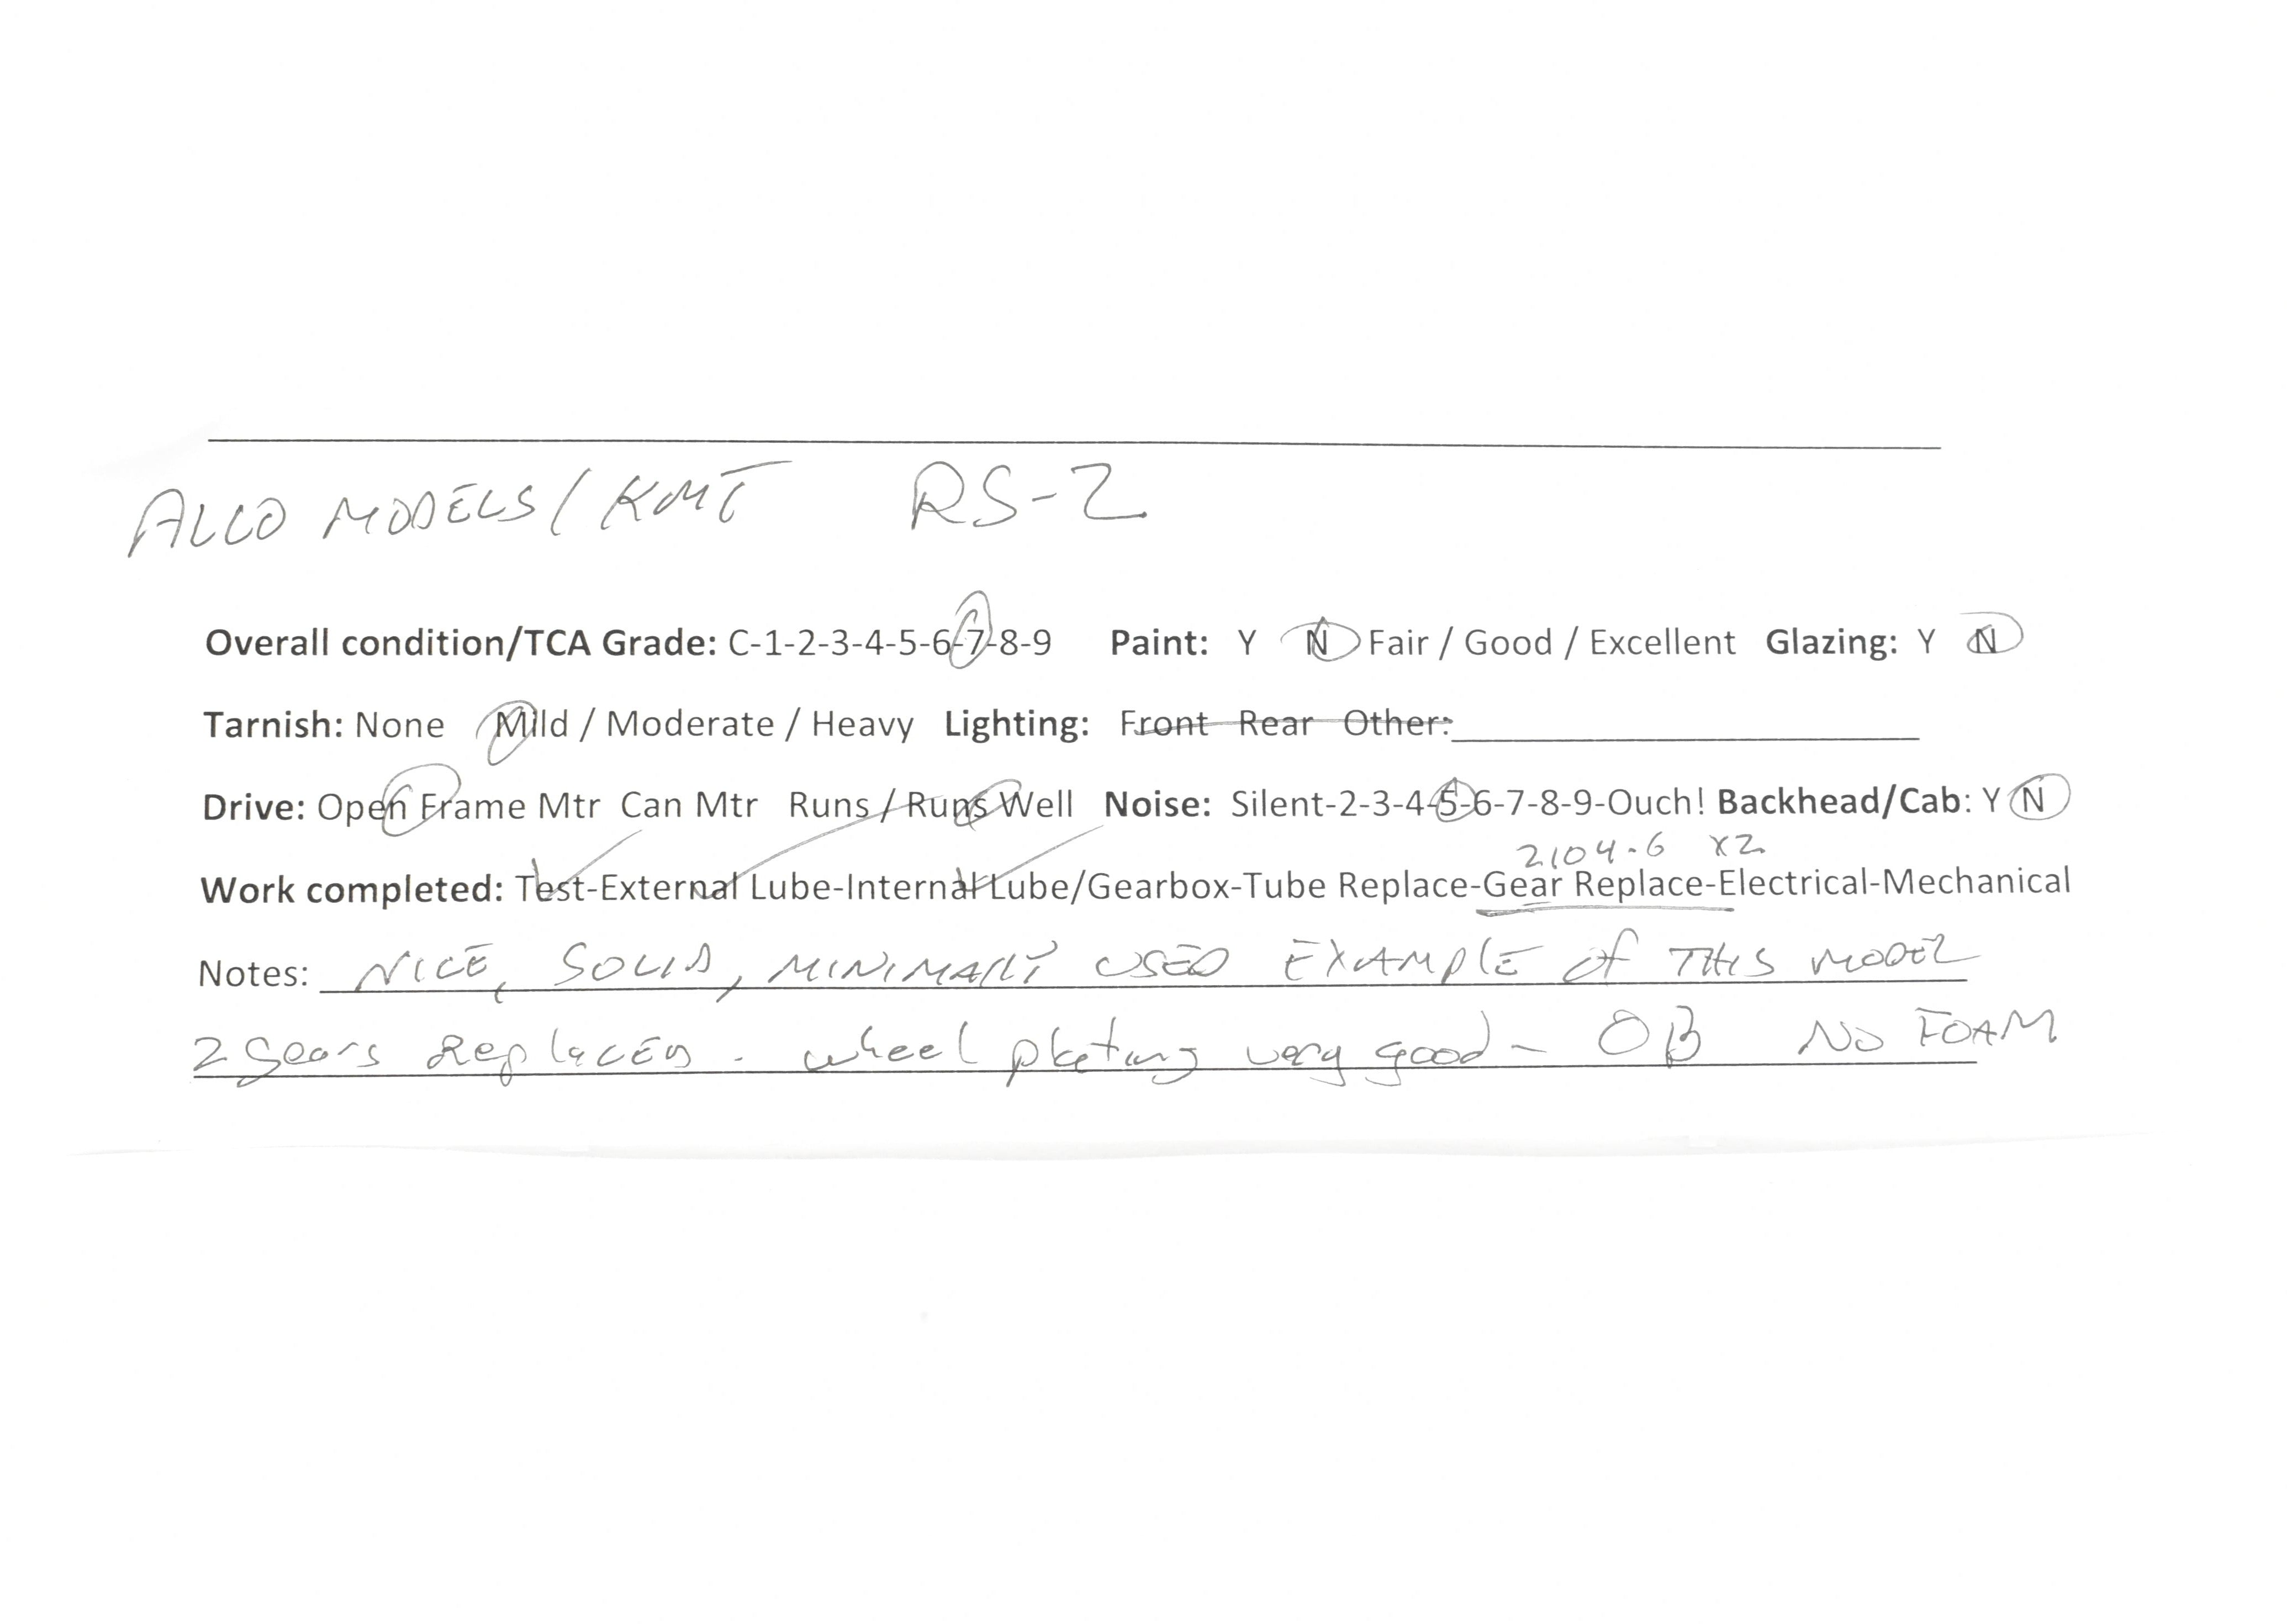 ALCO MODELS / KMT RS-2
Overall condition/TCA Grade: C-1-2-3-4-5-6-7-8-9 Paint: Y N Fair / Good / Excellent Glazing: Y N
Tarnish: None Mild / Moderate / Heavy Lighting: Front Rear Other:
Drive: Open Frame Mtr Can Mtr Runs / Runs Well Noise: Silent-2-3-4-5-6-7-8-9-Ouch! Backhead/Cab: Y N
2104-6 X2
Work completed: Test-External Lube-Internal Lube/Gearbox-Tube Replace-Gear Replace-Electrical-Mechanical
Notes: NICE, SOLID, MINIMALLY USED EXAMPLE of THIS MODEL
2 gears Replaced - wheel plating very good - OB NO FOAM